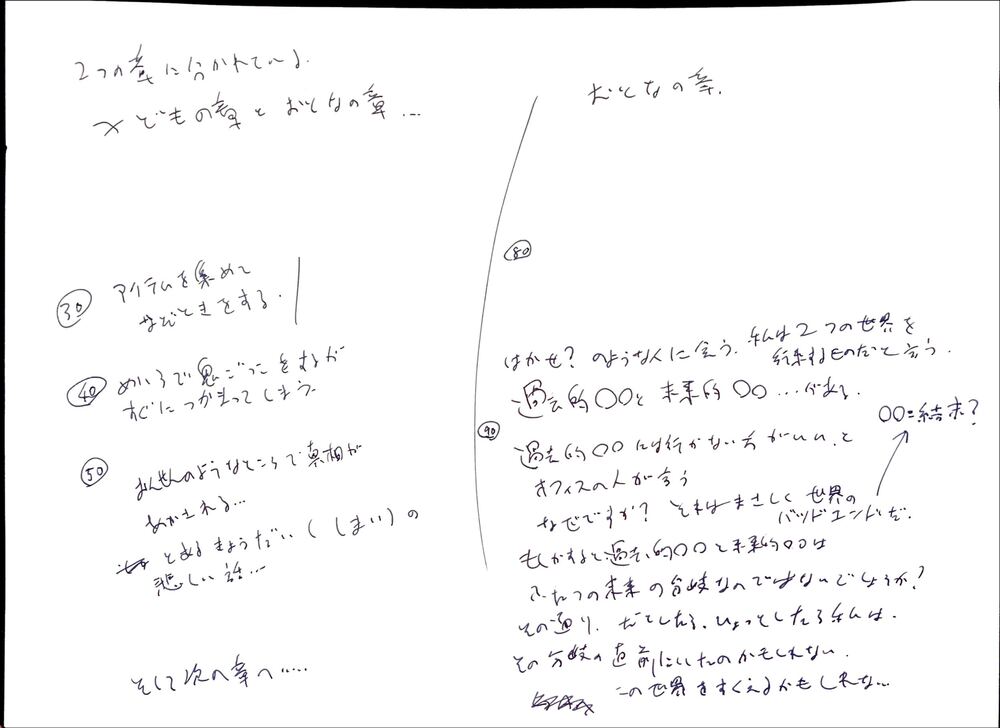 2つの章に分かれている。
こどもの章とおとなの章…
30 アイテムを集めて
なぞときをする。
40 めいろで鬼ごっこをするが
すぐにつかまってしまう。
50 おんせんのようなところで真相が
あかされる…
とあるきょうだい(しまい)の
悲しい話…
そして次の章へ……
おとなの章.
80
はかせ?のような人に会う.私は2つの世界を
行来するものだと言う.
過去的〇〇と未来的〇〇…がある.
90
〇〇=結末?
過去的〇〇には行かない方がいい,と
オフィスの人が言う
なぜですか?それはまさしく世界の
バッドエンドだ.
もしかすると過去的〇〇と未来的〇〇は
ふたつの未来の分岐なのではないでしょうか?
その通り.だとしたら,ひょっとしたら私は.
その分岐の直前にいたのかもしれない.
この世界をすくえるかもしれな…